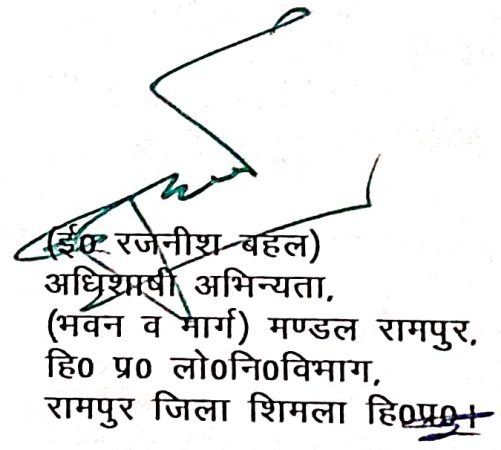 (ई0 रजनीश बहल)
अधिशाषी अभिन्यता,
(भवन व मार्ग) मण्डल रामपुर,
हि0 प्र0 लो0नि0विभाग,
रामपुर जिला शिमला हि0प्र0।